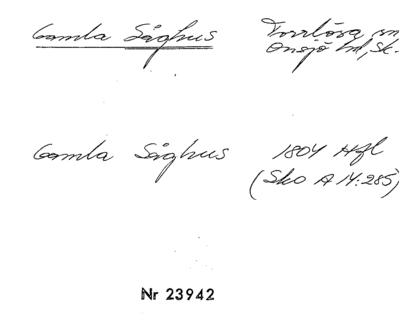 Gamla Såghus Torrlösa sn
Onsjö hd, Sk.
Gamla Såghus 1804 Hfl
(Sko A 14:285)
Nr 23942